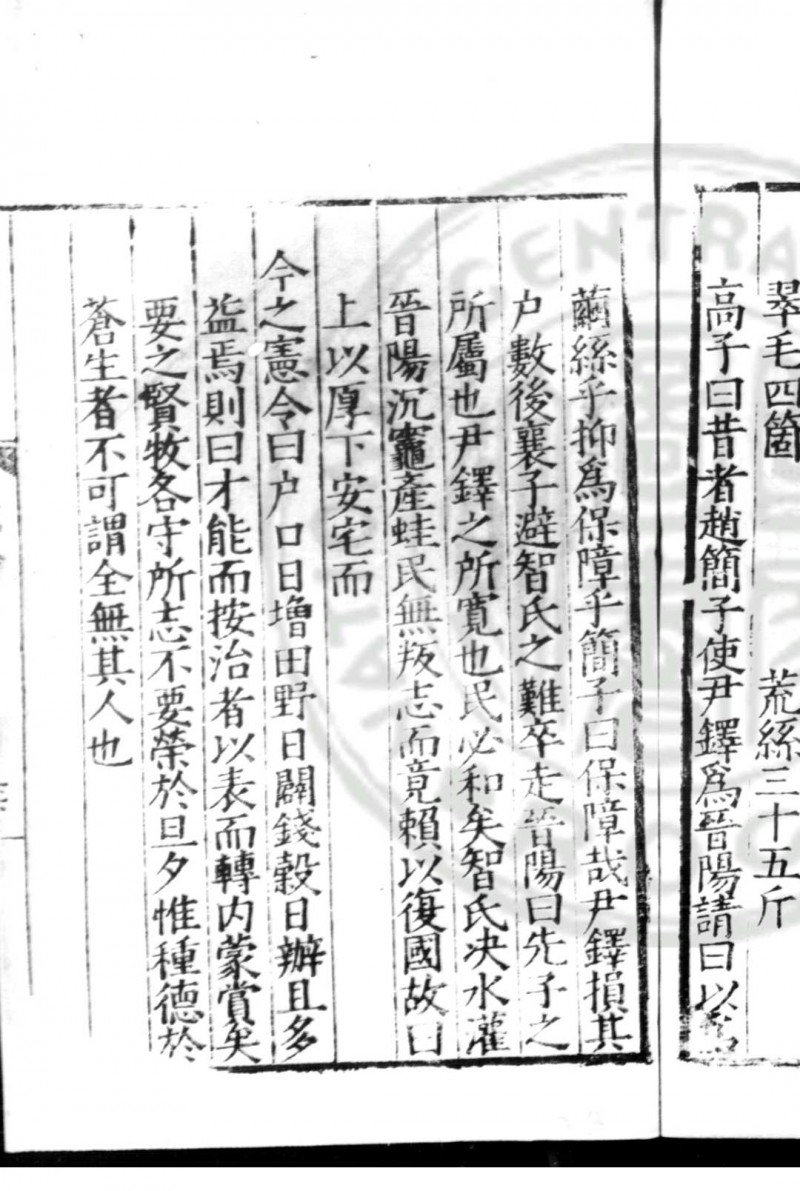 翠毛四箇　荒絲三十五斤
高子曰昔者趙簡子使尹鐸爲晉陽請曰以爲
繭絲乎抑爲保障乎簡子曰保障哉尹鐸損其
户數後襄子避智氏之難卒走晉陽曰先子之
所屬也尹鐸之所寬也民必和矣智氏决水灌
晉陽沉竈產蛙民無叛志而竟賴以復國故曰
上以厚下安宅而
今之憲令曰户口日增田野日闢錢穀日辦且多
益焉則曰才能而按治者以表而轉内蒙賞矣
要之賢牧各守所志不要榮於旦夕惟種德於
蒼生者不可謂全無其人也
CENTRA